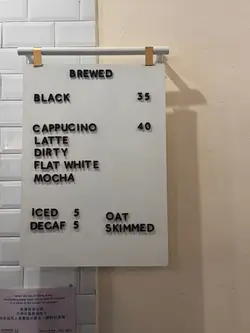 BREWED
BLACK 35
CAPPUCINO 40
LATTE
DIRTY
FLAT WHITE
MOCHA
ICED 5 OAT
DECAF 5 SKIMMED